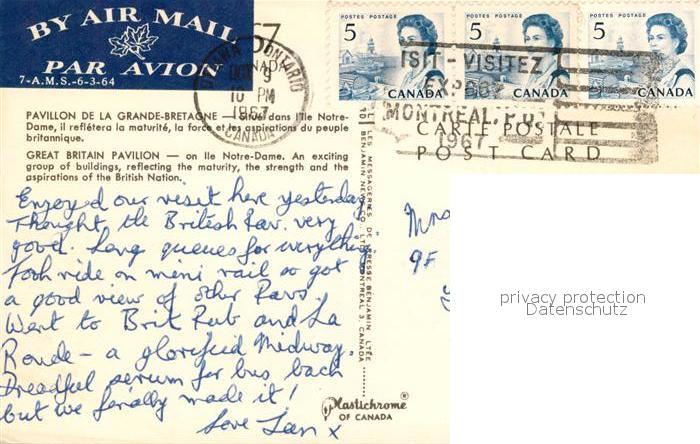 BY AIR MAIL
PAR AVION
7-A.M.S.-6-3-64
67
CANADA
OTTAWA ONTARIO
OCT 9
10 PM
1967
CANADA
POSTES POSTAGE
5
CANADA
POSTES POSTAGE
5
CANADA
POSTES POSTAGE
5
CANADA
ISIT - VISITEZ
EXPO67
MONTREAL, P.Q.
1967
CARTE POSTALE
POST CARD
PAVILLON DE LA GRANDE-BRETAGNE — Situé dans l'Ile Notre-
Dame, il reflétera la maturité, la force et les aspirations du peuple
britannique.
GREAT BRITAIN PAVILION — on Ile Notre-Dame. An exciting
group of buildings, reflecting the maturity, the strength and the
aspirations of the British Nation.
Enjoyed our visit here yesterday
Thought the British Pav. very
good. Long queues for everything
Took ride on mini rail so got
a good view of other Pavs.
Went to Brit Pub and La
Ronde - a glorified Midway.
Dreadful scrum for bus back
but we finally made it!
Love Ian x
LES MESSAGERIES DE PRESSE BENJAMIN LTÉE
BENJAMIN NEWS CO. LTD. MONTREAL 3, CANADA
9F
privacy protection
Datenschutz
Plastichrome®
OF CANADA